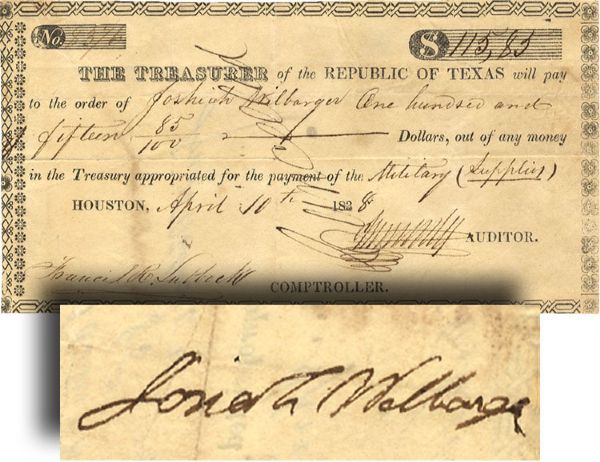 No.
$ 115,85
THE TREASURER of the REPUBLIC OF TEXAS will pay
to the order of Joshiah Wilbarger One hundred and
fifteen 85/100 Dollars, out of any money
in the Treasury appropriated for the payment of the Military (Supplies)
HOUSTON, April 10th 1838
AUDITOR.
Francis R. Lubbock
COMPTROLLER.
Josiah Wilbarger